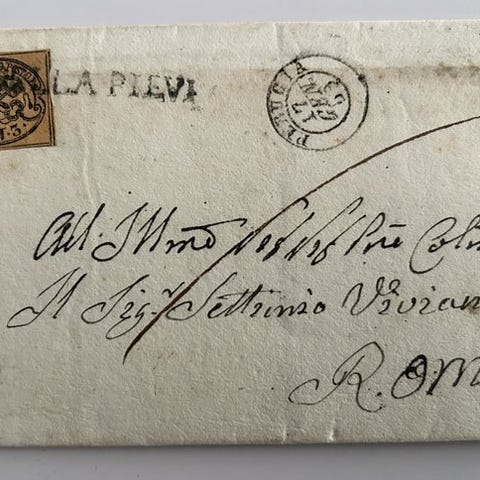 LA PIEVE
PERUGIA
All. Illmo Sig Sig Pne Coln
Il Sigr. Settimio Vivian
Rom